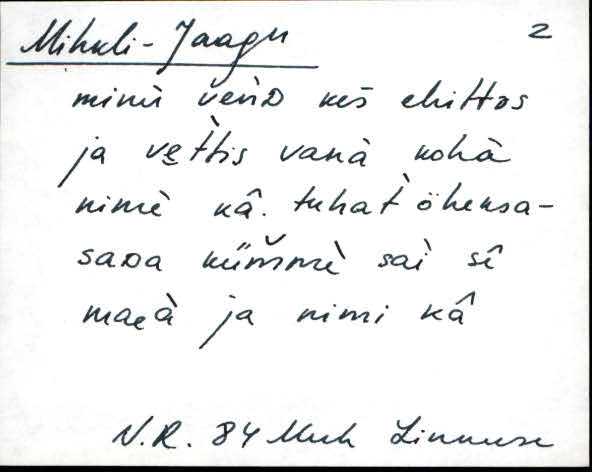 Mihkli-Jaagu 2
minù vènᴅ kes ehittɒs
ja vęt̀tis vanà kohà
nimè kâ. tuhat̀ öheksa-
saᴅa küm̆mè sai sê
maaà ja nimi kâ
N.R. 84 Muh Linnuse